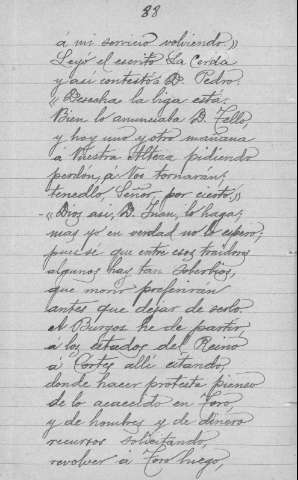 88
á mi servicio volviendo»
Leyó el escrito La Cerda
y así contestó á D. Pedro
«Desecha la liga está.
Bien lo anunciaba D. Tello,
y hoy uno y otro mañana
á Vuestra Alteza pidiendo
perdón, á Vos tornarán,
tenedlo, Señor, por cierto,»
-«Dios así, D. Juan, lo haga;
mas yo en verdad no lo espero;
pues sé que entre esos traidores
algunos hay tan soberbios,
que morir preferirán
antes que dejar de serlo.
A Burgos he de partir
á los estados del Reino
á Cortes allí citando,
donde hacer protesta pienso
de lo acaecido en Toro
y de hombres y de dinero
recursos solicitando,
revolver á Toro luego,